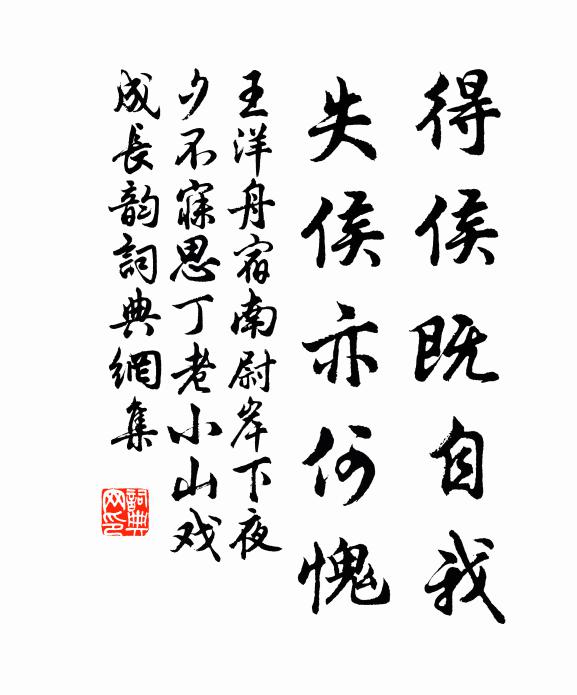 得侯既自我
失侯亦何愧
王洋舟宿南尉岸下夜
夕不寐思丁老小山戏
成長韵詞典網集
詞典
网印